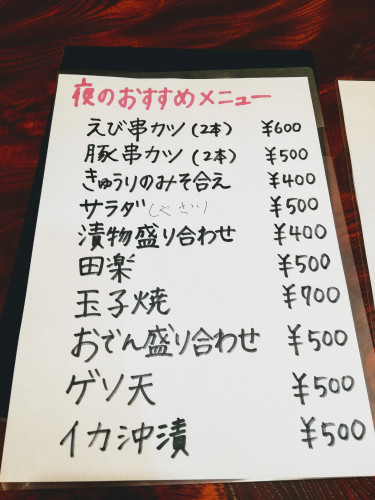 夜のおすすめメニュー
えび串カツ(2本) ¥600
豚串カツ(2本) ¥500
きゅうりのみそ合え ¥400
サラダ ¥500
漬物盛り合わせ ¥400
田楽 ¥500
玉子焼 ¥700
おでん盛り合わせ ¥500
ゲソ天 ¥500
イカ沖漬 ¥500